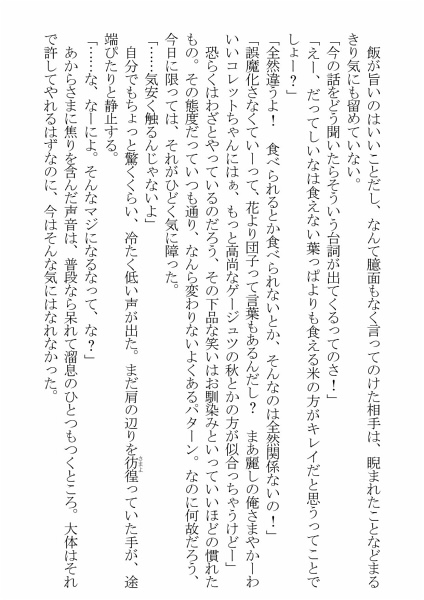 飯が旨いのはいいことだし、なんて臆面もなく言ってのけた相手は、睨まれたことなどまる
きり気にも留めていない。
「今の話をどう聞いたらそういう台詞が出てくるってのさ！」
「えー、だってしいなは食えない葉っぱよりも食える米の方がキレイだと思うってことで
しょー？」
「全然違うよ！　食べられるとか食べられないとか、そんなのは全然関係ないの！」
「誤魔化さなくていーって、花より団子って言葉もあるんだし？　まあ麗しの俺さまやかーわ
いいコレットちゃんにはぁ、もっと高尚なゲージュツの秋とかの方が似合っちゃうけどー」
　恐らくはわざとやっているのだろう、その下品な笑いはお馴染みといっていいほどの慣れた
もの。その態度だっていつも通り、なんら変わりないよくあるパターン。なのに何故だろう、
今日に限っては、それがひどく気に障った。
「……気安く触るんじゃないよ」
　自分でもちょっと驚くくらい、冷たく低い声が出た。まだ肩の辺りを彷徨っていた手が、途
端ぴたりと静止する。
「……な、なーによ。そんなマジになるなって、な？」
　あからさまに焦りを含んだ声音は、普段なら呆れて溜息のひとつもつくところ。大体はそれ
で許してやれるはずなのに、今はそんな気にはなれなかった。